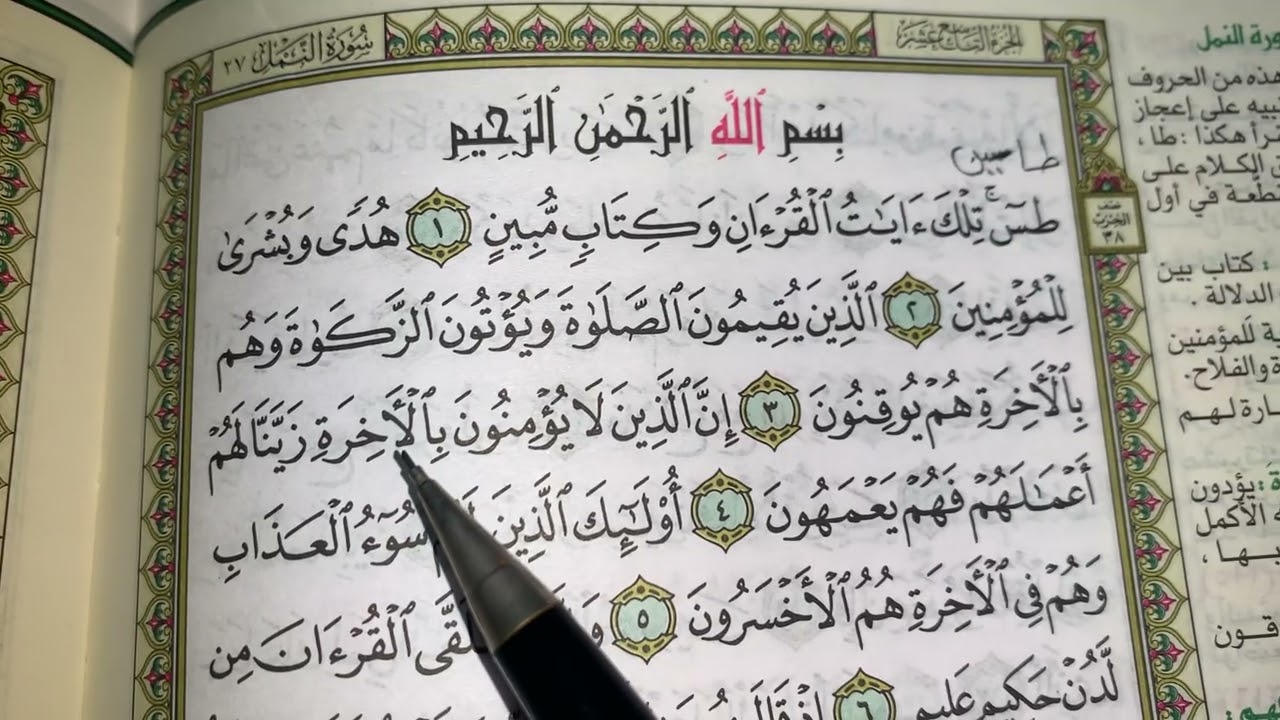 سُورَةُ النَّمْلِ ٢٧
الجُزءُ التَّاسِعَ عَشَرَ
بِسْمِ ٱللَّهِ ٱلرَّحْمَٰنِ ٱلرَّحِيمِ
طا سين
طسٓۚ تِلْكَ ءَايَٰتُ ٱلْقُرْءَانِ وَكِتَابٍ مُّبِينٍ ١ هُدًى وَبُشْرَىٰ
لِلْمُؤْمِنِينَ ٢ ٱلَّذِينَ يُقِيمُونَ ٱلصَّلَوٰةَ وَيُؤْتُونَ ٱلزَّكَوٰةَ وَهُم
بِٱلْأَخِرَةِ هُمْ يُوقِنُونَ ٣ إِنَّ ٱلَّذِينَ لَا يُؤْمِنُونَ بِٱلْأَخِرَةِ زَيَّنَّا لَهُمْ
أَعْمَٰلَهُمْ فَهُمْ يَعْمَهُونَ ٤ أُوْلَٰٓئِكَ ٱلَّذِينَ سُوٓءُ ٱلْعَذَابِ
وَهُمْ فِى ٱلْأَخِرَةِ هُمُ ٱلْأَخْسَرُونَ ٥ ٱلْقُرْءَانَ مِن
لَّدُنْ حَكِيمٍ عَلِيمٍ ٦ إِذْ قَالَ
نصف
الحزب
٣٨
النمل
هذه من الحروف
على إعجاز
هكذا : طا ،
الكلام على
في أول
: كتاب بين
الدلالة .
لمؤمنين
والفلاح.
لهم
: يؤدون
الأكمل